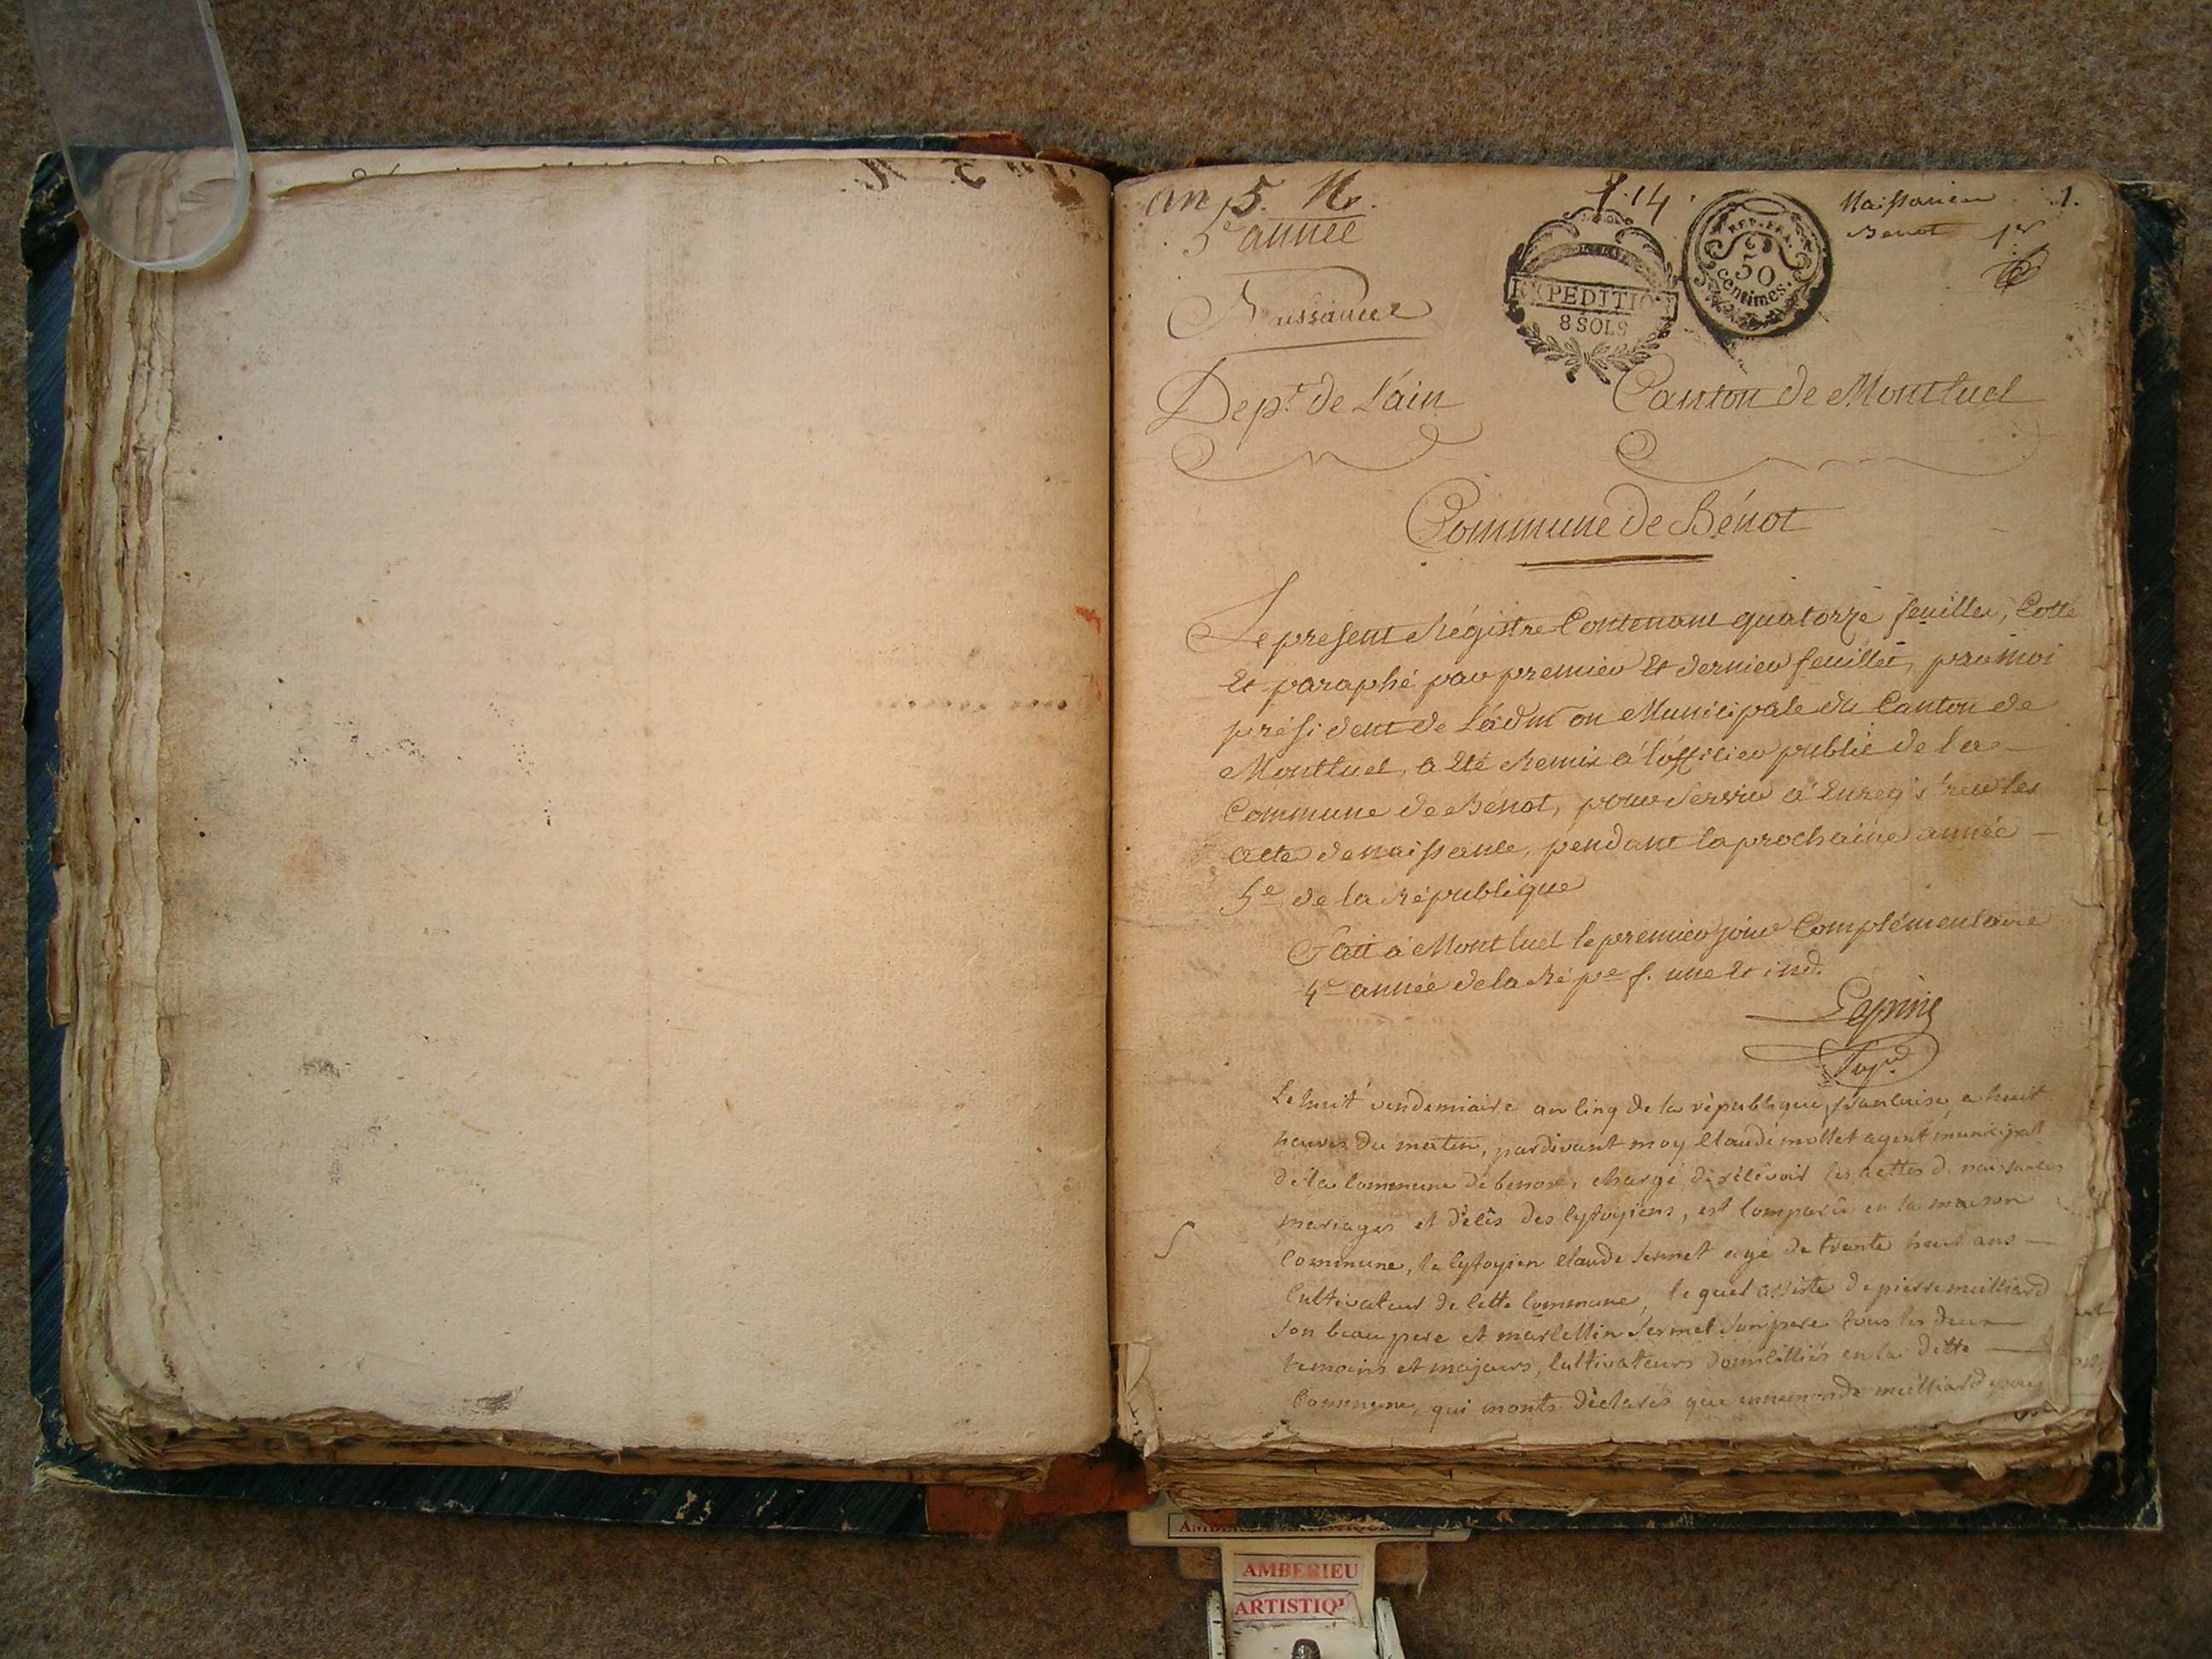 an 5. N.
f. 14.
Naissances
1.
5e année
Benot
1er
Naissances
EXPEDITION
8 SOLS
REP. FRA.
50
Centimes.
Dept. de L'ain
Canton de Montluel
Commune de Bénot
Le present Régistre Contenant quatorze feuillets, Cotté
Et paraphé par premier Et dernier feuillet, par moi
président de L'adm on Municipale du Canton de
Montluel, a Eté Remis à l'officier public de la
Commune de Bénot, pour Servir à Enregistrer les
actes de naissance, pendant la prochaine année
5e de la République
Fait à Montluel le premier jour Complémentaire
4e année de la Répe f. une Et ind.
Le huit vendemiaire an cinq de la république francaise, a huit
heures du matin, pardevant moy Claude mollet agent municipal
de la Commune de benot, chargé de récévoir les acttes de naissances
mariages et décès des cytoyiens, est Comparû en la maison
Commune, le cytoyien Claude Sermet agé de trante huit ans
Cultivateur de cette Commune, le quel assisté de pierre meilliard
son beau pere et marcellin Sermet son pere tous les deux
temoins et majeurs, Cultivateurs domicilliés en la ditte
Commune, qui mont déclarés que ennemonde meilliard
AMBERIEU
ARTISTIQ